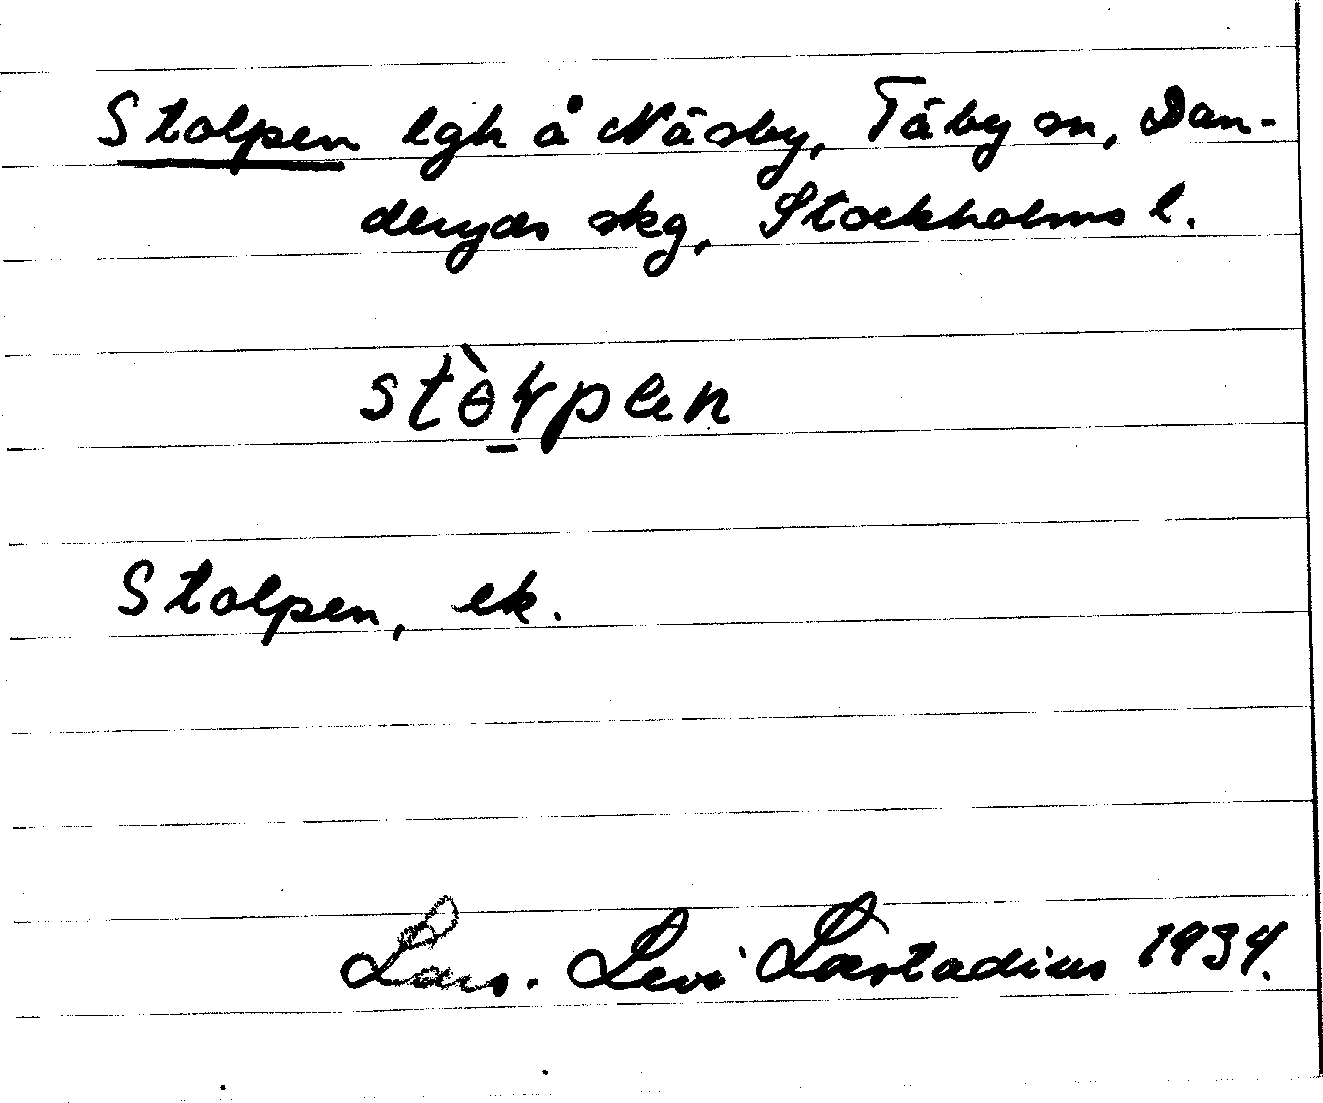 Stolpen lgh å Näsby, Täby sn, Dan-
deryds skg, Stockholms l.
Stolpen, ek.
Lars. Levi Læstadius 1934.